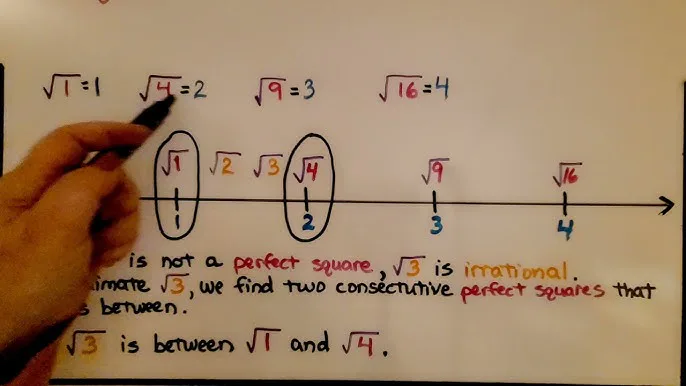 √1=1 √4=2 √9=3 √16=4
√1 √2 √3 √4 √9 √16
1 2 3 4
is not a perfect square, √3 is irrational.
imate √3, we find two consectutive perfect squares that
s between.
√3 is between √1 and √4.